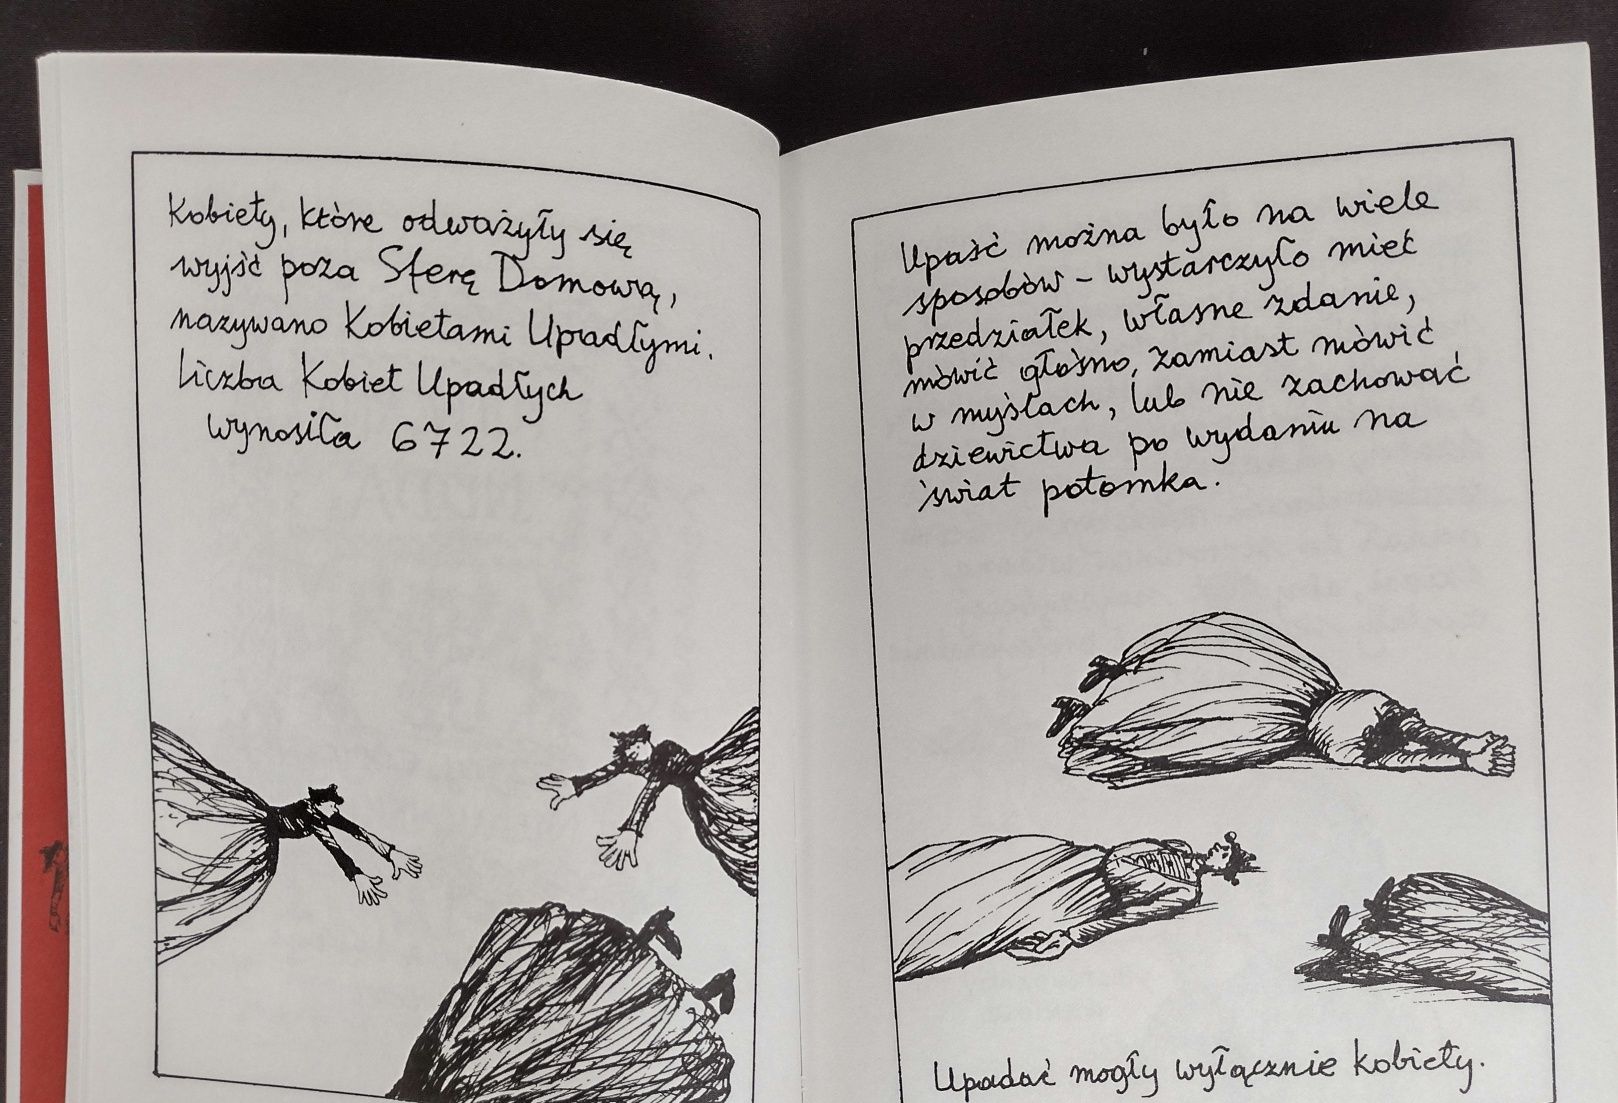 Kobiety, które odważyły się
wyjść poza Sferę Domową,
nazywano Kobietami Upadłymi.
Liczba Kobiet Upadłych
wynosiła 6722.
Upaść można było na wiele
sposobów – wystarczyło mieć
przedziałek, własne zdanie,
mówić głośno, zamiast mówić
w myślach, lub nie zachować
dziewictwa po wydaniu na
świat potomka.
Upadać mogły wyłącznie kobiety.